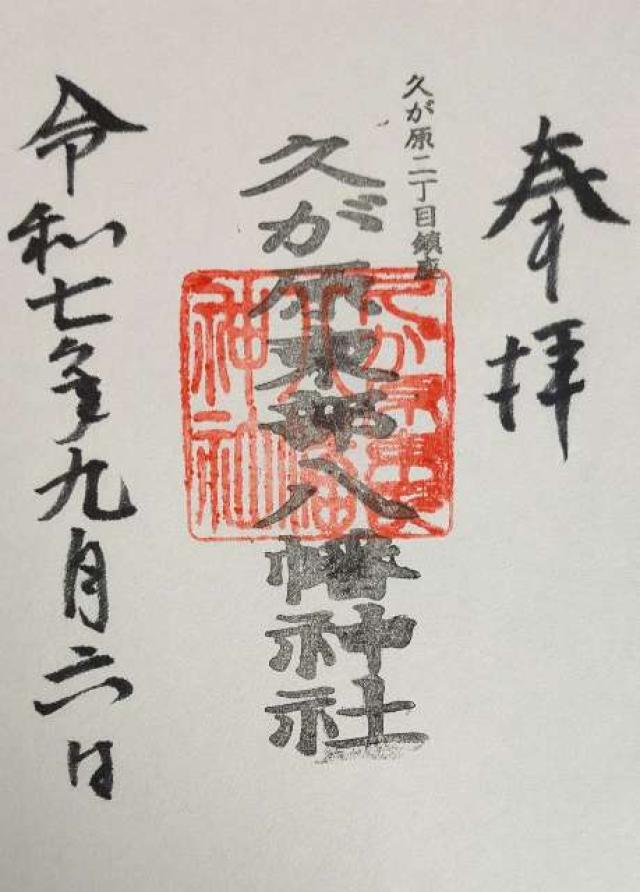 奉拝
久が原二丁目鎮座
久が原東部八幡神社
令和七年九月六日